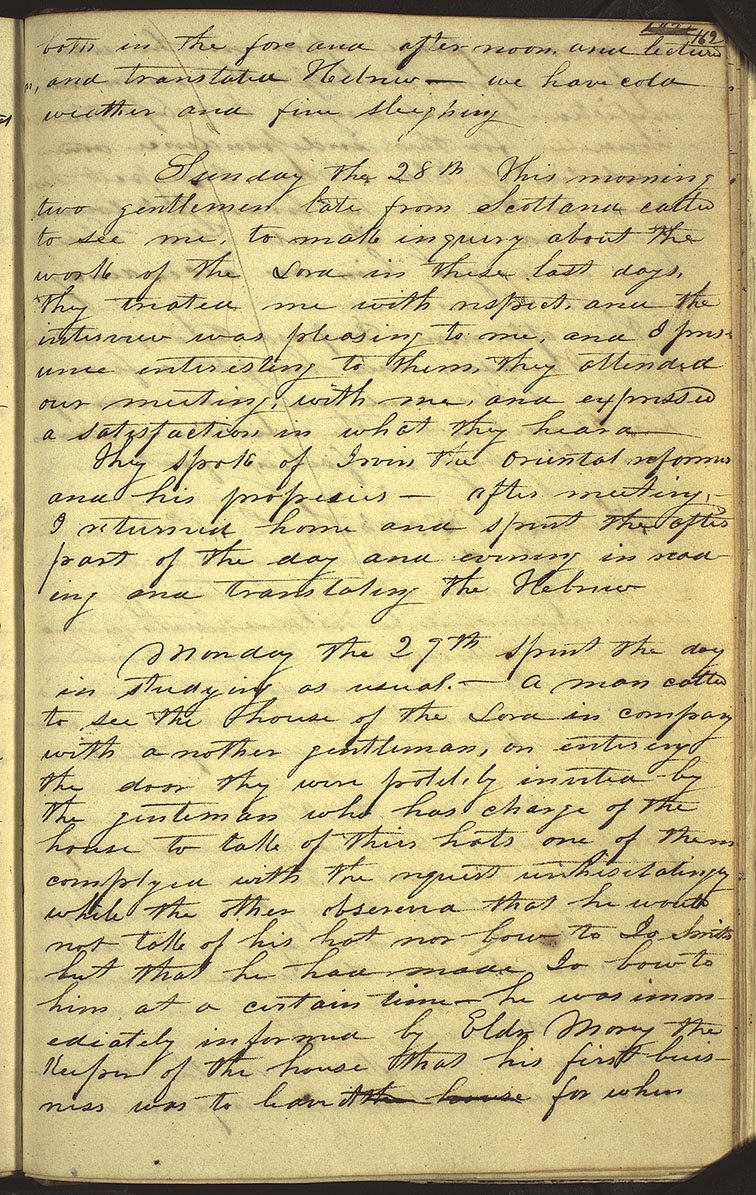 162
both in the fore and after noon. and lectured
and translated Hebrew— we have cold
weather and fine sleighing
Sunday the 28th This morning
two gentlemen late from Scotland called
to see me, to make inquiry about the
work of the Lord in these last days,
they treated me with respect, and the
interview was pleasing to me, and I pres-
ume interesting to them, they attended
our meeting, with me, and expressed
a satisfaction in what they heard—
they spoke of Irvin the oriental reformer
and his propesies— after meeting,—
I returned home and spent the after
part of the day and evening in read-
ing and translating the Hebrew
Monday the 29th spent the day
in studying as usual.— A man called
to see the house of the Lord in company
with another gentleman, on entering
the door they were politely invited by
the gentleman who has charge of the
house to take of thier hats one of them
complyed with the request unhesitatingly
while the other observed that he would
not take of his hat nor bow to Jo Smith
but that he had made Jo bow to
him at a certain time— he was imm-
ediately informed by Eldr Morey the
keeper of the house that his first buis-
ness was to leave the house for when